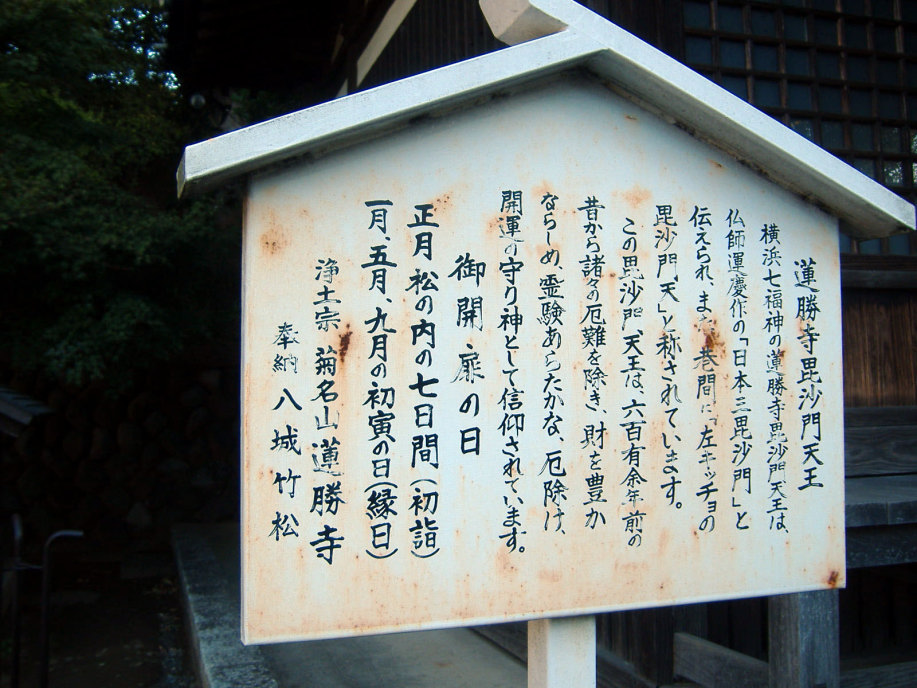 蓮勝寺毘沙門天王
横浜七福神の蓮勝寺毘沙門天王は、
仏師運慶作の「日本三毘沙門」と
伝えられ、また、巷間に「左キッチョの
毘沙門天」と称されています。
この毘沙門天王は、六百有余年前の
昔から諸々の厄難を除き、財を豊か
ならしめ、霊験あらたかな、厄除け、
開運の守り神として信仰されています。
御開扉の日
正月松の内の七日間(初詣)
一月、五月、九月の初寅の日(縁日)
浄土宗 菊名山 蓮勝寺
奉納 八城竹松